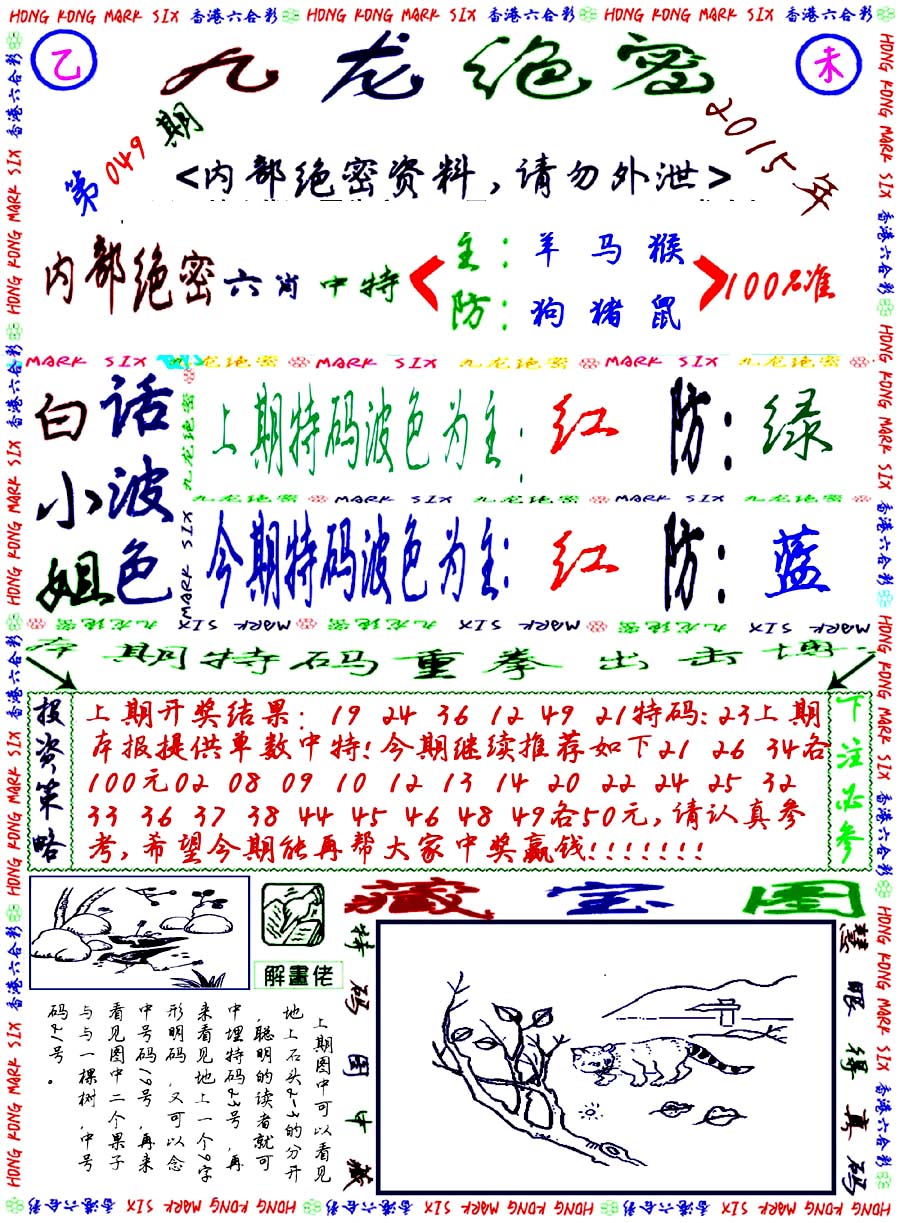 HONG KONG MARK SIX 香港六合彩 HONG KONG MARK SIX 香港六合彩 HONG KONG MARK SIX 香港六合彩
乙
九龙绝密
未
第049期
2015年
<内部绝密资料,请勿外泄>
内部绝密六肖 中特
主:羊 马 猴
防:狗 猪 鼠
100%准
MARK SIX 九龙绝密 MARK SIX 九龙绝密 MARK SIX 九龙绝密
白小姐
话波色
上期特码波色为主: 红 防: 绿
九龙绝密 MARK SIX 九龙绝密 MARK SIX 九龙绝密
今期特码波色为主: 红 防: 蓝
九龙绝密 MARK SIX 九龙绝密 MARK SIX 九龙绝密 MARK SIX
本期特码重拳出击博
投资策略
上期开奖结果: 19 24 36 12 49 21特码:23上期
本报提供单数中特!今期继续推荐如下21 26 34各
100元02 08 09 10 12 13 14 20 22 24 25 32
33 36 37 38 44 45 46 48 49各50元,请认真参
考,希望今期能再帮大家中奖赢钱!!!!!!!
下注必参
藏宝图
解畫佬
特码图中藏
慧眼得真码
上期图中可以看见
地上石头2-3的分开
,聪明的读者就可
中埋特码23号,再
来看见地上一个9字
形明码,又可以念
中号码19号,再来
看见图中二个果子
与与一棵树,中号
码21号。
HONG KONG MARK SIX 香港六合彩 HONG KONG MARK SIX 香港六合彩 HONG KONG MARK SIX 香港六合彩